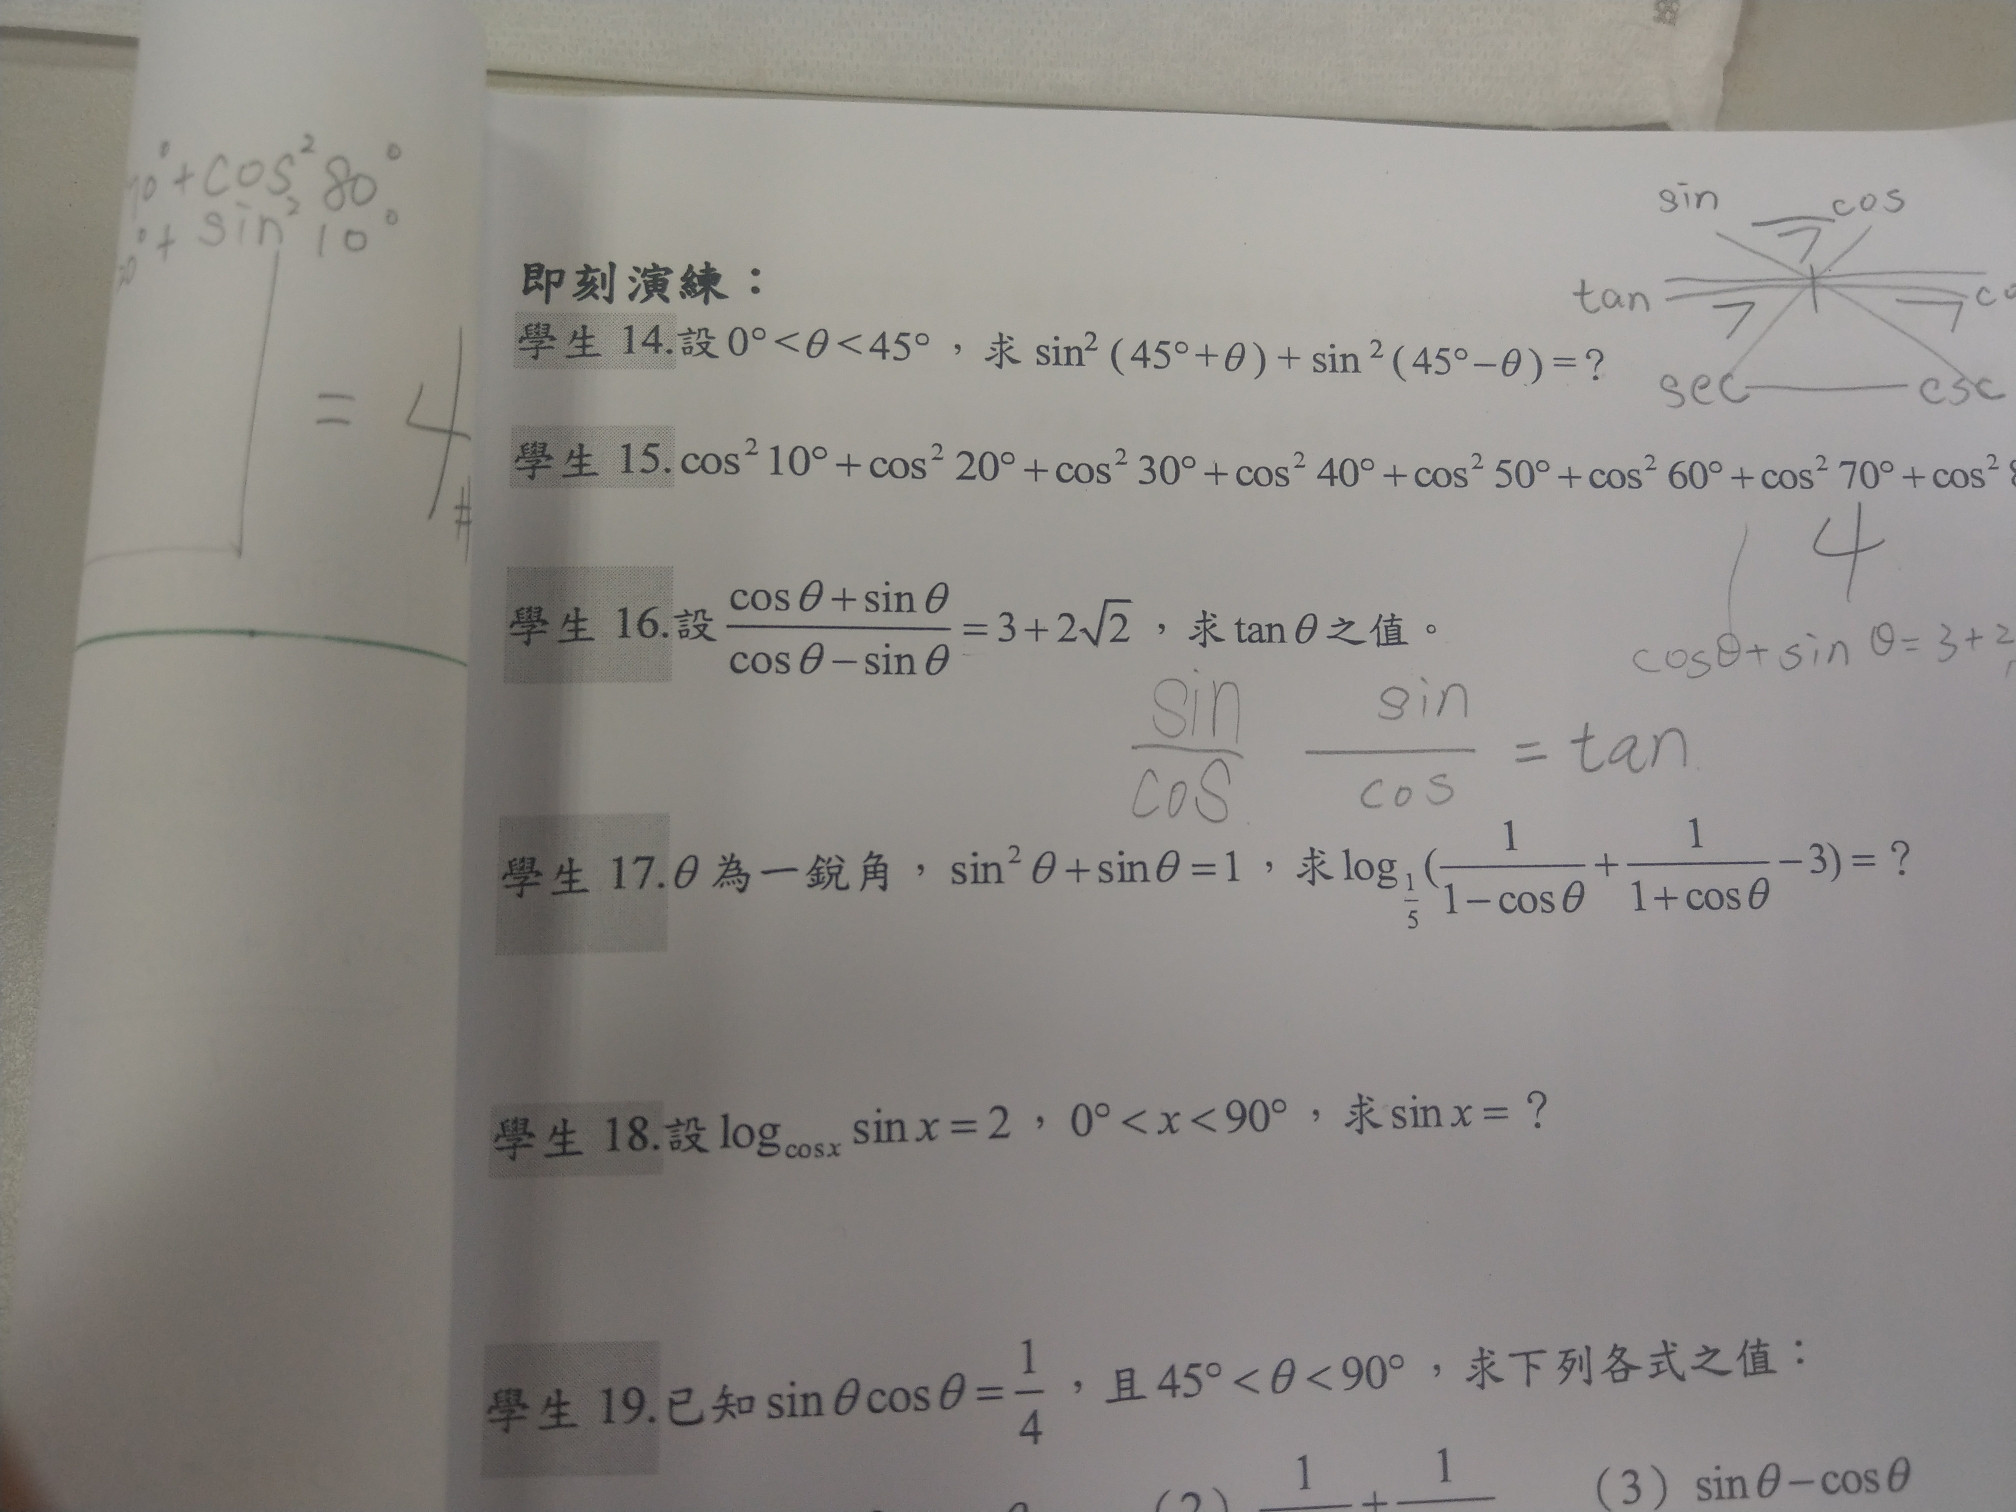 +cos² 80°
+ sin² 10°
= 4
#
sin cos
即刻演練：
tan
學生 14.設0°<θ<45°，求 sin² (45°+θ)+sin² (45°−θ)=？
sec csc
學生 15.cos² 10°+cos² 20°+cos² 30°+cos² 40°+cos² 50°+cos² 60°+cos² 70°+cos²
4
學生 16.設 (cosθ+sinθ)/(cosθ−sinθ) =3+2√2，求 tanθ之值。
cosθ+sin θ=3+2
sin/cos sin/cos = tan
學生 17.θ為一銳角，sin² θ+sinθ=1，求log_{1/5}(1/(1−cosθ)+1/(1+cosθ)−3)=？
學生 18.設 log_{cosx} sinx=2，0°<x<90°，求sinx=？
學生 19.已知sinθcosθ=1/4，且45°<θ<90°，求下列各式之值：
(2) 1 + 1 (3) sinθ−cosθ